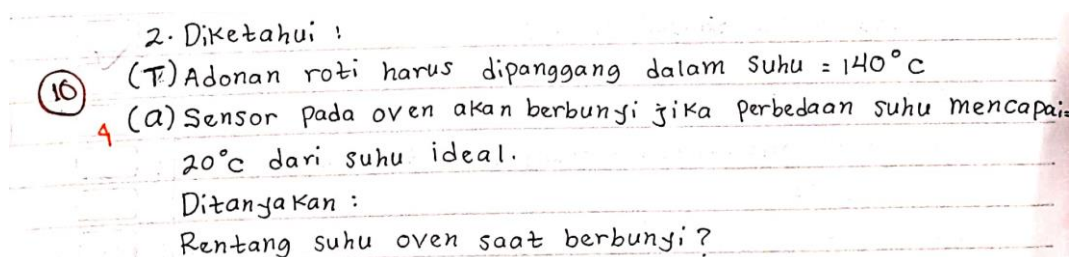 2. Diketahui :
(T) Adonan roti harus dipanggang dalam suhu = 140°C
10
(a) Sensor pada oven akan berbunyi jika perbedaan suhu mencapai=
4
20°C dari suhu ideal.
Ditanyakan :
Rentang suhu oven saat berbunyi?